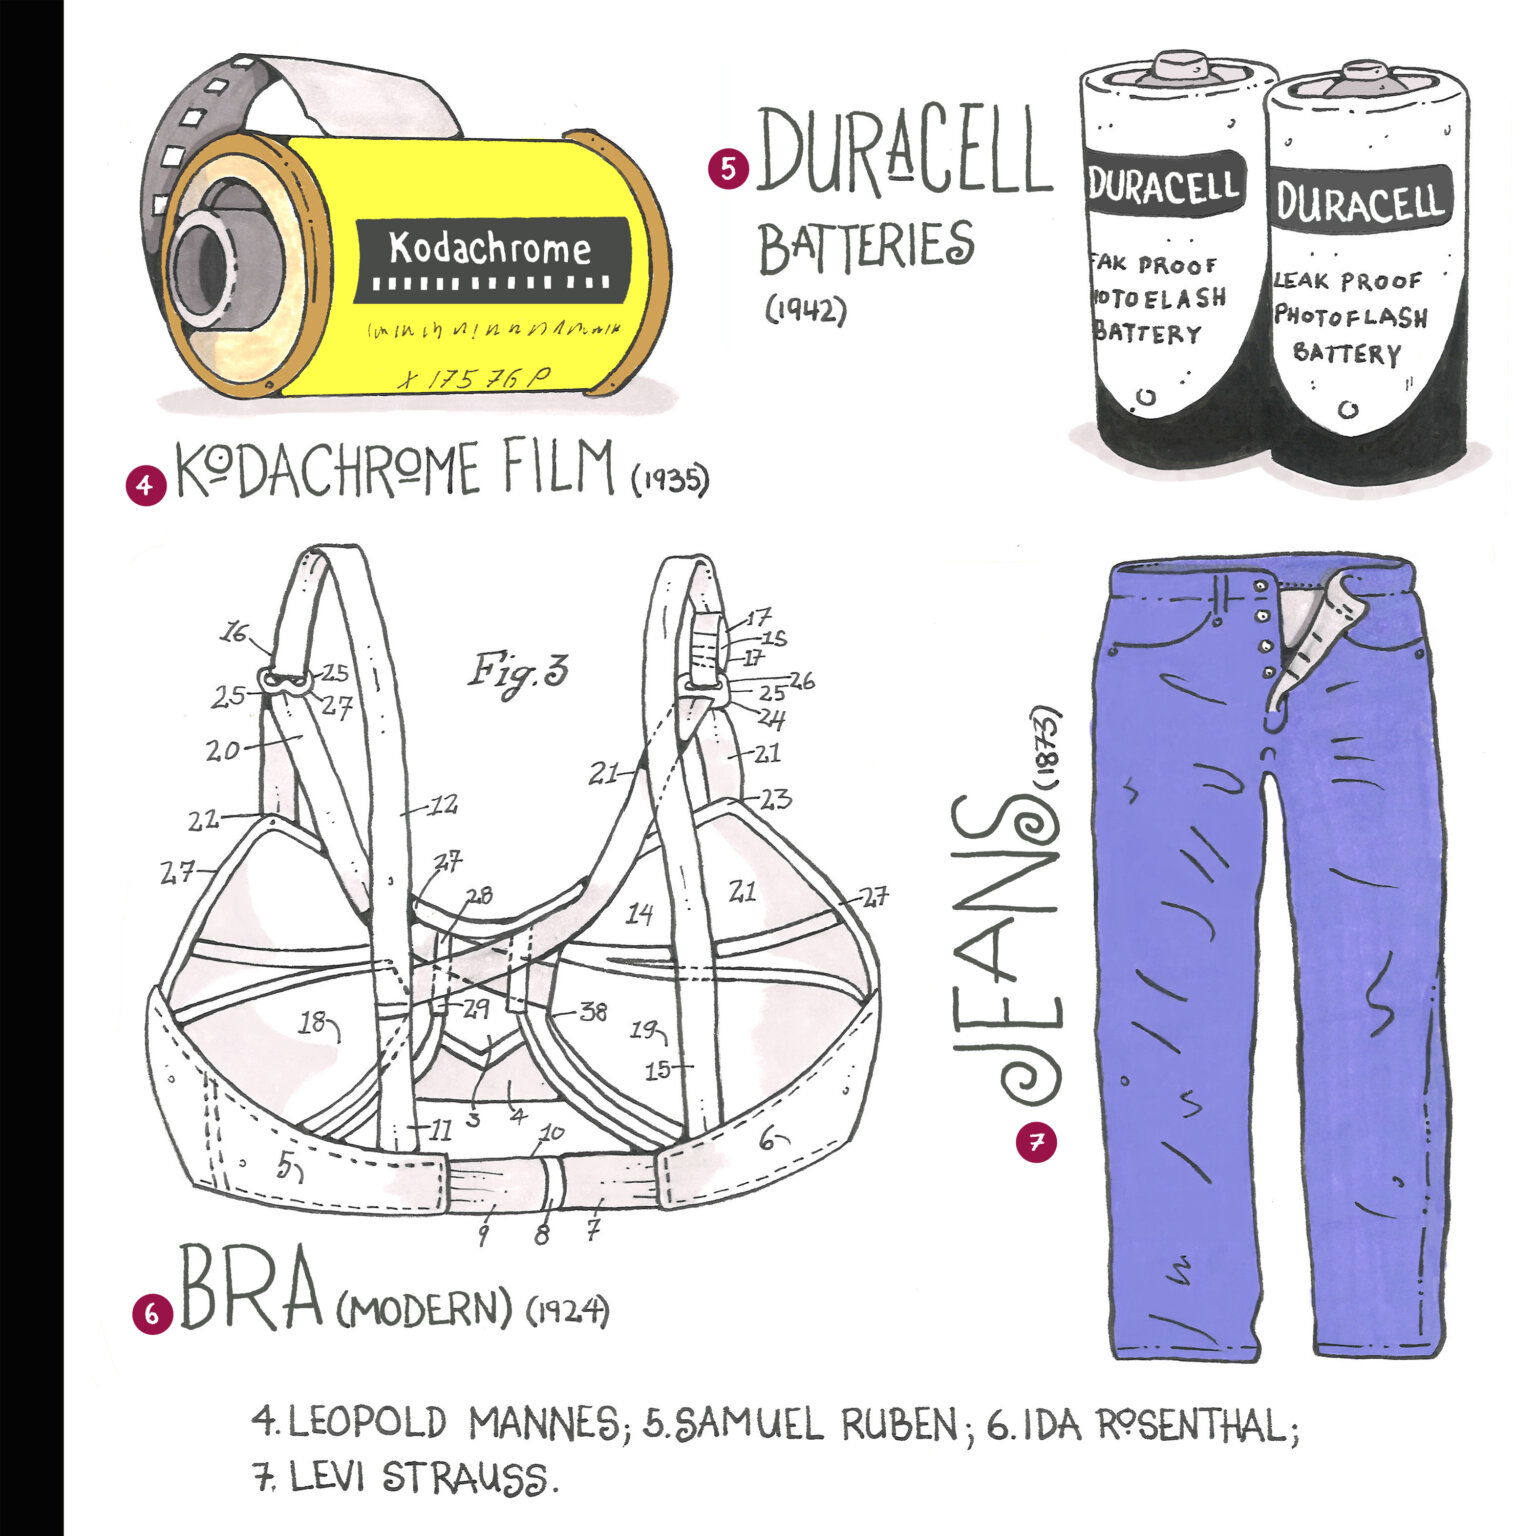 Kodachrome
X 17576P
4 KODACHROME FILM (1935)
5 DURACELL
BATTERIES
(1942)
DURACELL
EAK PROOF
HOTOELASH
BATTERY
DURACELL
LEAK PROOF
PHOTOFLASH
BATTERY
Fig.3
16
25
25
27
20
22
27
12
27
28
18
29
3
4
11
10
5
9
8
7
17
18
17
26
25
24
21
21
23
14
21
27
38
19
15
6
6 BRA (MODERN) (1924)
7 JEANS (1873)
4. LEOPOLD MANNES; 5. SAMUEL RUBEN; 6. IDA ROSENTHAL;
7. LEVI STRAUSS.